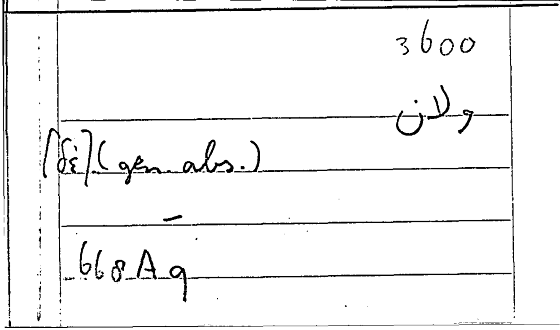 3600
ولان
[δὲ] (gen. abs.)
–
668 A 9